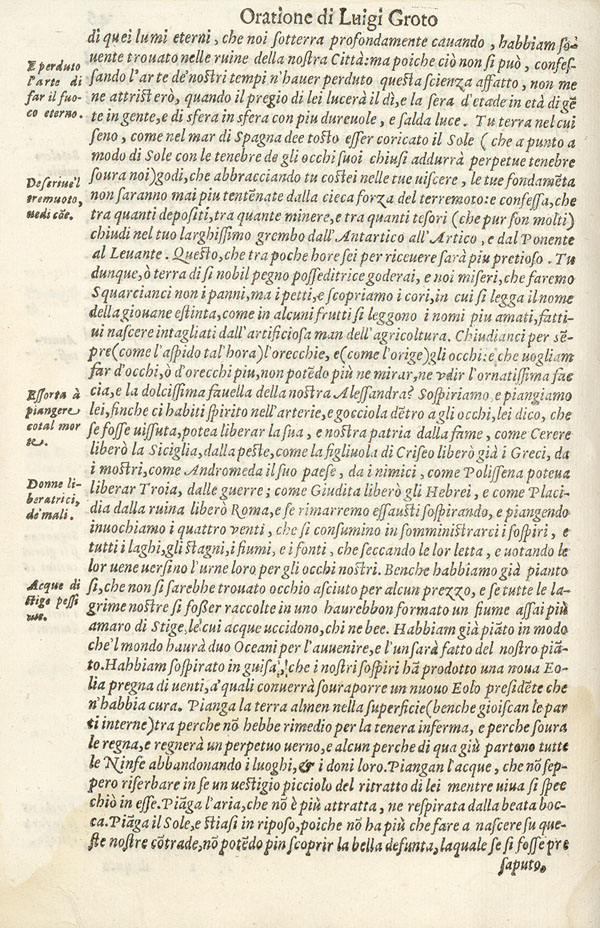 Oratione di Luigi Groto
di quei lumi eterni, che noi sotterra profondamente cauando, habbiam so-
uente trouato nelle ruine della nostra Città: ma poiche ciò non si può, confes-
sando l'arte de' nostri tempi n'hauer perduto questa scienza affatto, non me
ne attristerò, quando il pregio di lei lucerà il dì, e la sera d'etade in età di gẽ
te in gente, e di sfera in sfera con piu dureuole, e salda luce. Tu terra nel cui
seno, come nel mar di Spagna dee tosto esser coricato il Sole (che a punto a
modo di Sole con le tenebre de gli occhi suoi chiusi addurrà perpetue tenebre
soura noi) godi, che abbracciando tu costei nelle tue uiscere, le tue fondamẽta
non saranno mai piu tentẽnate dalla cieca forza del terremoto: e confessa, che
tra quanti depositi, tra quante minere, e tra quanti tesori (che pur son molti)
chiudi nel tuo larghissimo grembo dall'Antartico all'Artico, e dal Ponente
al Leuante. Questo, che tra poche hore sei per riceuere sarà piu pretioso. Tu
dunque, ò terra di si nobil pegno posseditrice goderai, e noi miseri, che faremo
Squarcianci non i panni, ma i petti, e scopriamo i cori, in cui si legga il nome
della giouane estinta, come in alcuni frutti si leggono i nomi piu amati, fatti-
ui nascere intagliati dall'artificiosa man dell'agricoltura. Chiudianci per sẽ-
pre (come l'aspido tal'hora) l'orecchie, e (come l'orige) gli occhi: e che uogliam
far d'occhi, ò d'orecchi piu, non potẽdo piu ne mirar, ne vdir l'ornatissima fac
cia, e la dolcissima fauella della nostra Alessandra? Sospiriamo e piangiamo
lei, finche ci habiti spirito nell'arterie, e gocciola dẽtro a gli occhi, lei dico, che
se fosse uissuta, potea liberar la sua, e nostra patria dalla fame, come Cerere
liberò la Siciglia, dalla peste, come la figliuola di Criseo liberò già i Greci, da
i mostri, come Andromeda il suo paese, da i nimici, come Polissena poteua
liberar Troia, dalle guerre; come Giudita liberò gli Hebrei, e come Placi-
dia dalla ruina liberò Roma, e se rimarremo essausti sospirando, e piangendo
inuochiamo i quattro venti, che si consumino in somministrarci i sospiri, e
tutti i laghi, gli stagni, i fiumi, e i fonti, che seccando le lor letta, e uotando le
lor uene uersino l'urne loro per gli occhi nostri. Benche habbiamo già pianto
si, che non si sarebbe trouato occhio asciuto per alcun prezzo, e se tutte le la-
grime nostre si foßer raccolte in uno haurebbon formato un fiume assai più
amaro di Stige, le cui acque uccidono, chi ne bee. Habbiam già piãto in modo
che'l mondo haurà duo Oceani per l'auuenire, e l'un sarà fatto del nostro piã-
to. Habbiam sospirato in guisa, che i nostri sospiri hã prodotto una noua Eo-
lia pregna di uenti, a' quali conuerrà souraporre un nuouo Eolo presidẽte che
n'habbia cura. Pianga la terra almen nella superficie (benche gioiscan le par
ti interne) tra perche nõ hebbe rimedio per la tenera inferma, e perche soura
le regna, e regnerà un perpetuo uerno, e alcun perche di qua giù partono tutte
le Ninfe abbandonando i luoghi, & i doni loro. Piangan l'acque, che nõ sep-
pero riserbare in se un uestigio picciolo del ritratto di lei mentre uiua si spec
chiò in esse. Piãga l'aria, che nõ è più attratta, ne respirata dalla beata boc-
ca. Piãga il Sole, e stiasi in riposo, poiche nõ ha più che fare a nascere su que-
ste nostre cõtrade, nõ potẽdo pin scoprir la bella defunta, laquale se si fosse pre
saputo,
E perduto
l'arte di
far il fuo-
co eterno.
Descriue'l
tremuoto,
uedi cõe.
Essorta à
piangere
cotal mor
te.
Donne li-
beratrici,
de' mali.
Acque di
stige pessi
me.